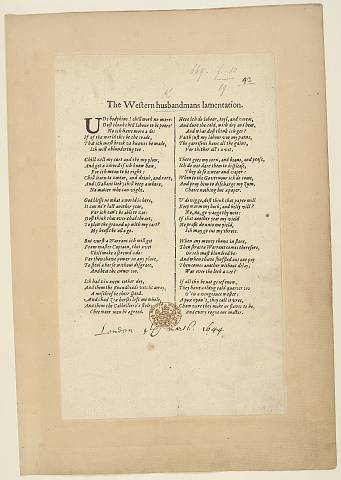 169. f. 10
19
42
The Western husbandmans lamentation.
UDs bodykins! chill work no more:
Dost think chill labour to be poore?
No ich have more a do:
If of the world this be the trade,
That ich must break to knaves be made,
Ich will a blundering too.
Chill zell my cart and eke my plow,
And get a zword if ich know how,
For ich mean to be right:
Chill learn to zwear, and drink, and rore,
And (Gallant leek) chill keep a whore,
No matter who can vight.
God blesse us what a world is here,
It can ne'r last another year,
Vor ich can't be able to zoe:
Dost think that ever chad the art,
To plou the ground up with my cart?
My beasts be all a go.
But vurst a Warrant ich will get
From master Captain, that a vet
Chill make a shrewd a do:
Vor then chave power in any place,
To steal a horse without disgrace,
And beat the owner too.
Ich had zix oxen tother day,
And them the Roundheads vetcht away,
A mischief be their speed.
And chad zix horses left me whole,
And them the Cabbellero's stole,
Chee voor men be agreed.
Here ich do labour, toyl, and zweat,
And dure the cold, with dry and heat,
And what dost think ich get?
Faith just my labour vor my pains,
The garrisons have all the gains,
Vor thither all's a vet.
There goes my corn, and beans, and pease,
Ich do not dare them to displease,
They do zo zwear and vaper:
When to the Governour ich do come,
And pray him to discharge my zum,
Chave nothing but a paper.
U'ds nigs, dost think that paper will
Keep warm my back, and belly vill?
No, no, go vange thy note:
If that another year my vield
No profit do unto me yield,
Ich may go cut my throat.
When any money chove in store,
Then straight a Warrant comes therefore,
Or ich must blundred be:
And when chave shuffled out one pay,
Then comes another without delay,
Was ever the leek a zee?
If all this be not grief enow,
They have a thing cald quarter too
O 'tis a vengeance waster:
A pox upon't, they call it vree,
Cham zure they make us slaves to be,
And every rogue our master.
London March 1644